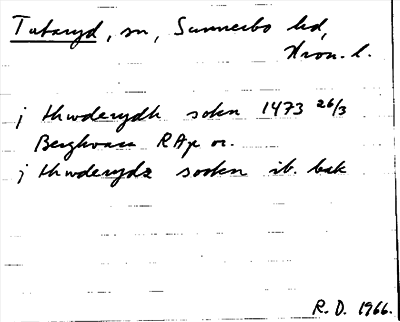 Tutaryd, sn, Sunnerbo hd,
Kron. l.
j thwderydh sokn 1473 26/3
Berghvara RAp or.
j thwderydz sookn ib. bak
R.D. 1966.